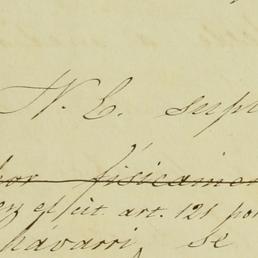 N. E. supl
por físicamen
en el cit. art. 121 por
hávarri, se